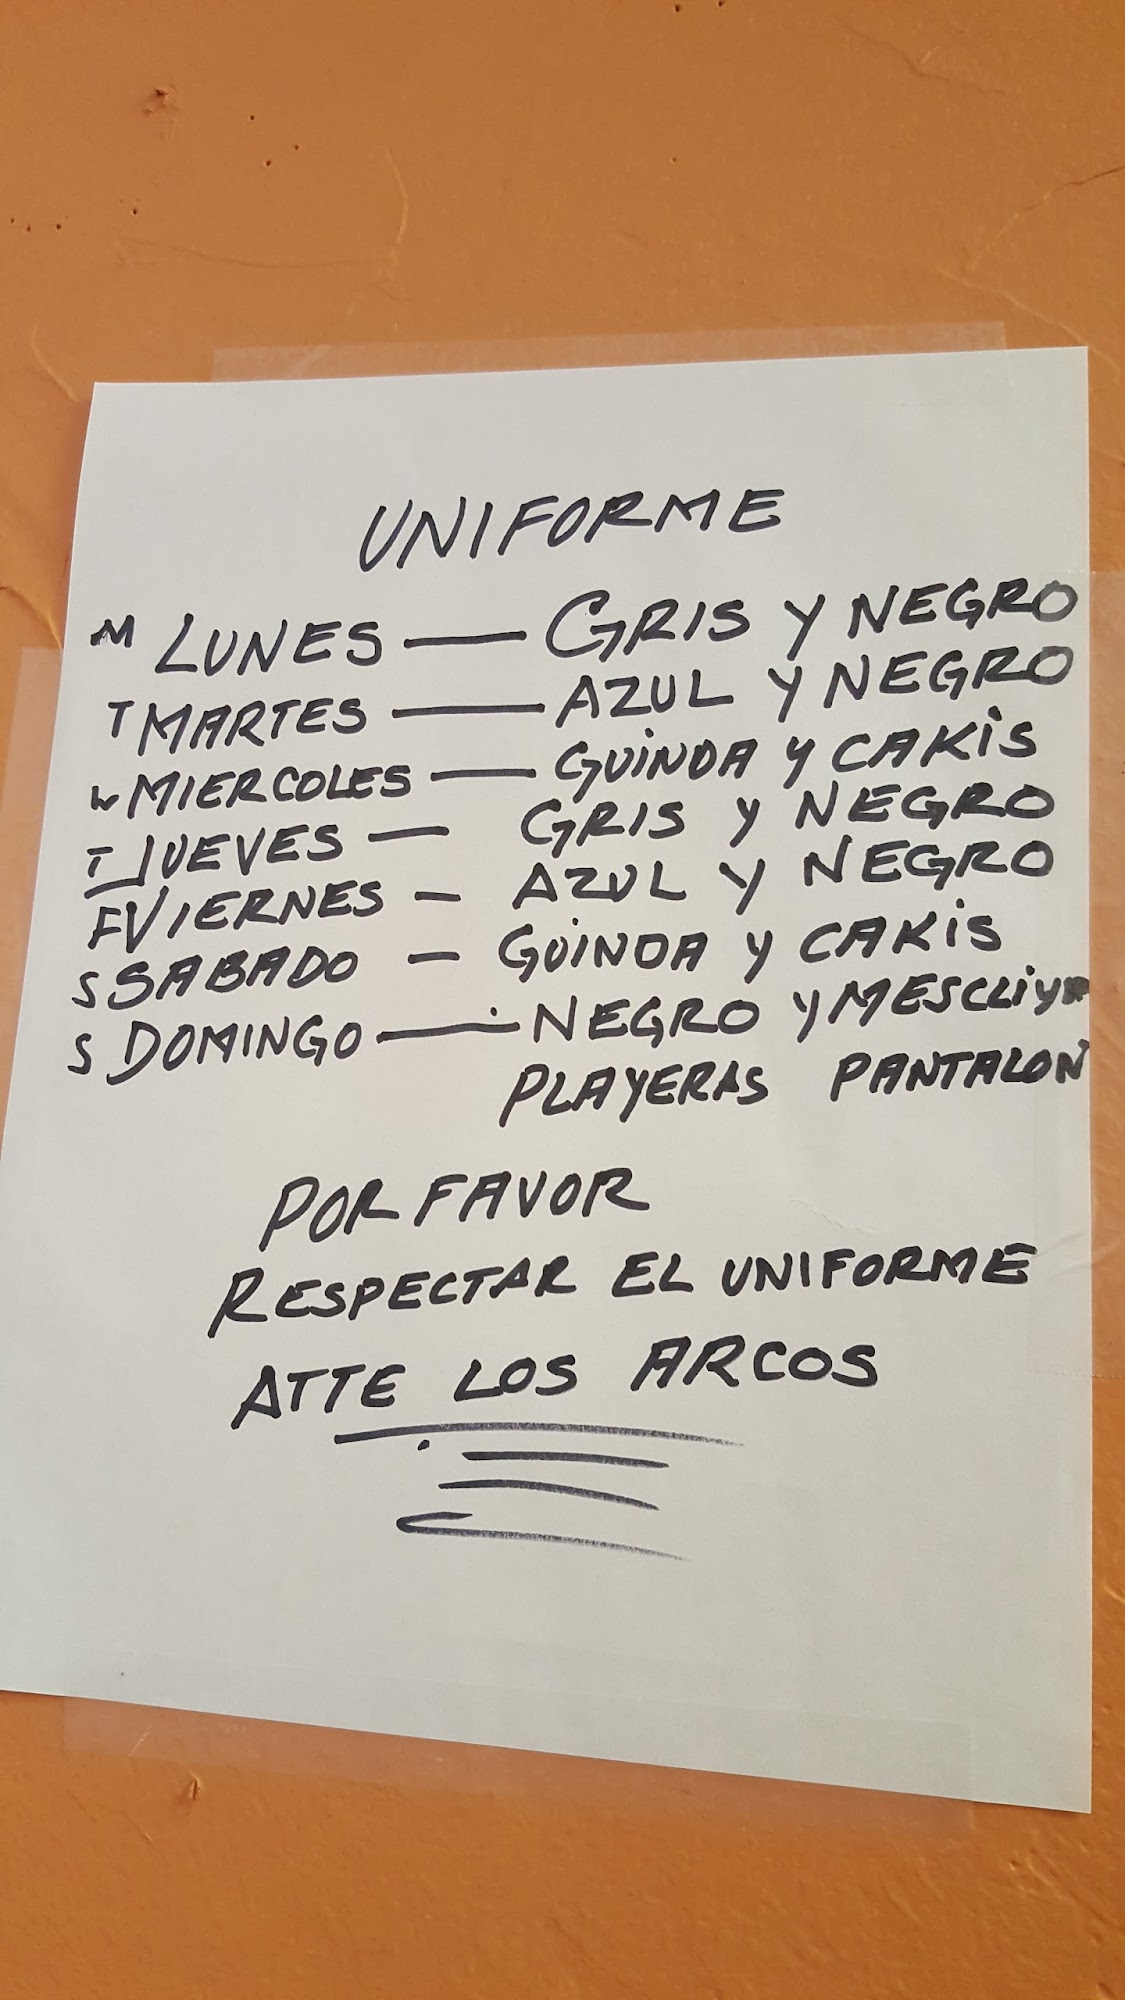 UNIFORME
M LUNES — GRIS Y NEGRO
T MARTES — AZUL Y NEGRO
W MIERCOLES — GUINDA Y CAKIS
T JUEVES — GRIS Y NEGRO
F VIERNES — AZUL Y NEGRO
S SABADO — GUINDA Y CAKIS
S DOMINGO — NEGRO Y
PLAYERAS PANTALON
POR FAVOR
RESPECTAR EL UNIFORME
ATTE LOS ARCOS